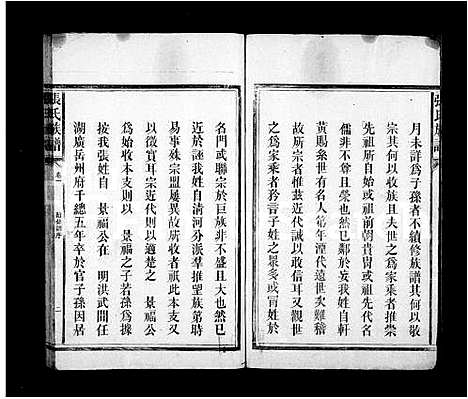 月未詳為子孫者不續修族譜其何以敬
宗其何以收族且夫世之為家乘者推崇
先祖所自出或祖前朝貴胄以顯或祖先代名
儒非不尊且榮也然己鄰於妄我姓自軒
黃賜糸世有名人第年湮代遠世次難稽
作者述者惟茲近代誠以收信耳又觀世
之為家乘者矜言子姓之眾多或濟於
名門或聯宗於巨族非不盛且大也然已
近於誣我姓自清河分派羣推望族第時
易事殊宗盟屢異故所收者祇此本支又
以徵實耳宗近代則以適楚之 景福公
為始收本支則以 景福之子若孫為據
按我張姓自 景福公在 明洪武間任
湖廣岳州府千總五年卒於官子孫因居
張氏族譜
卷一